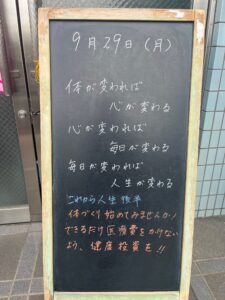 9月29日(月)
体が変われば
心が変わる
心が変われば
毎日が変わる
毎日が変われば
人生が変わる
これから人生後半
体づくり始めてみませんか!
できるだけ医療費をかけない
よう、健康投資を!!